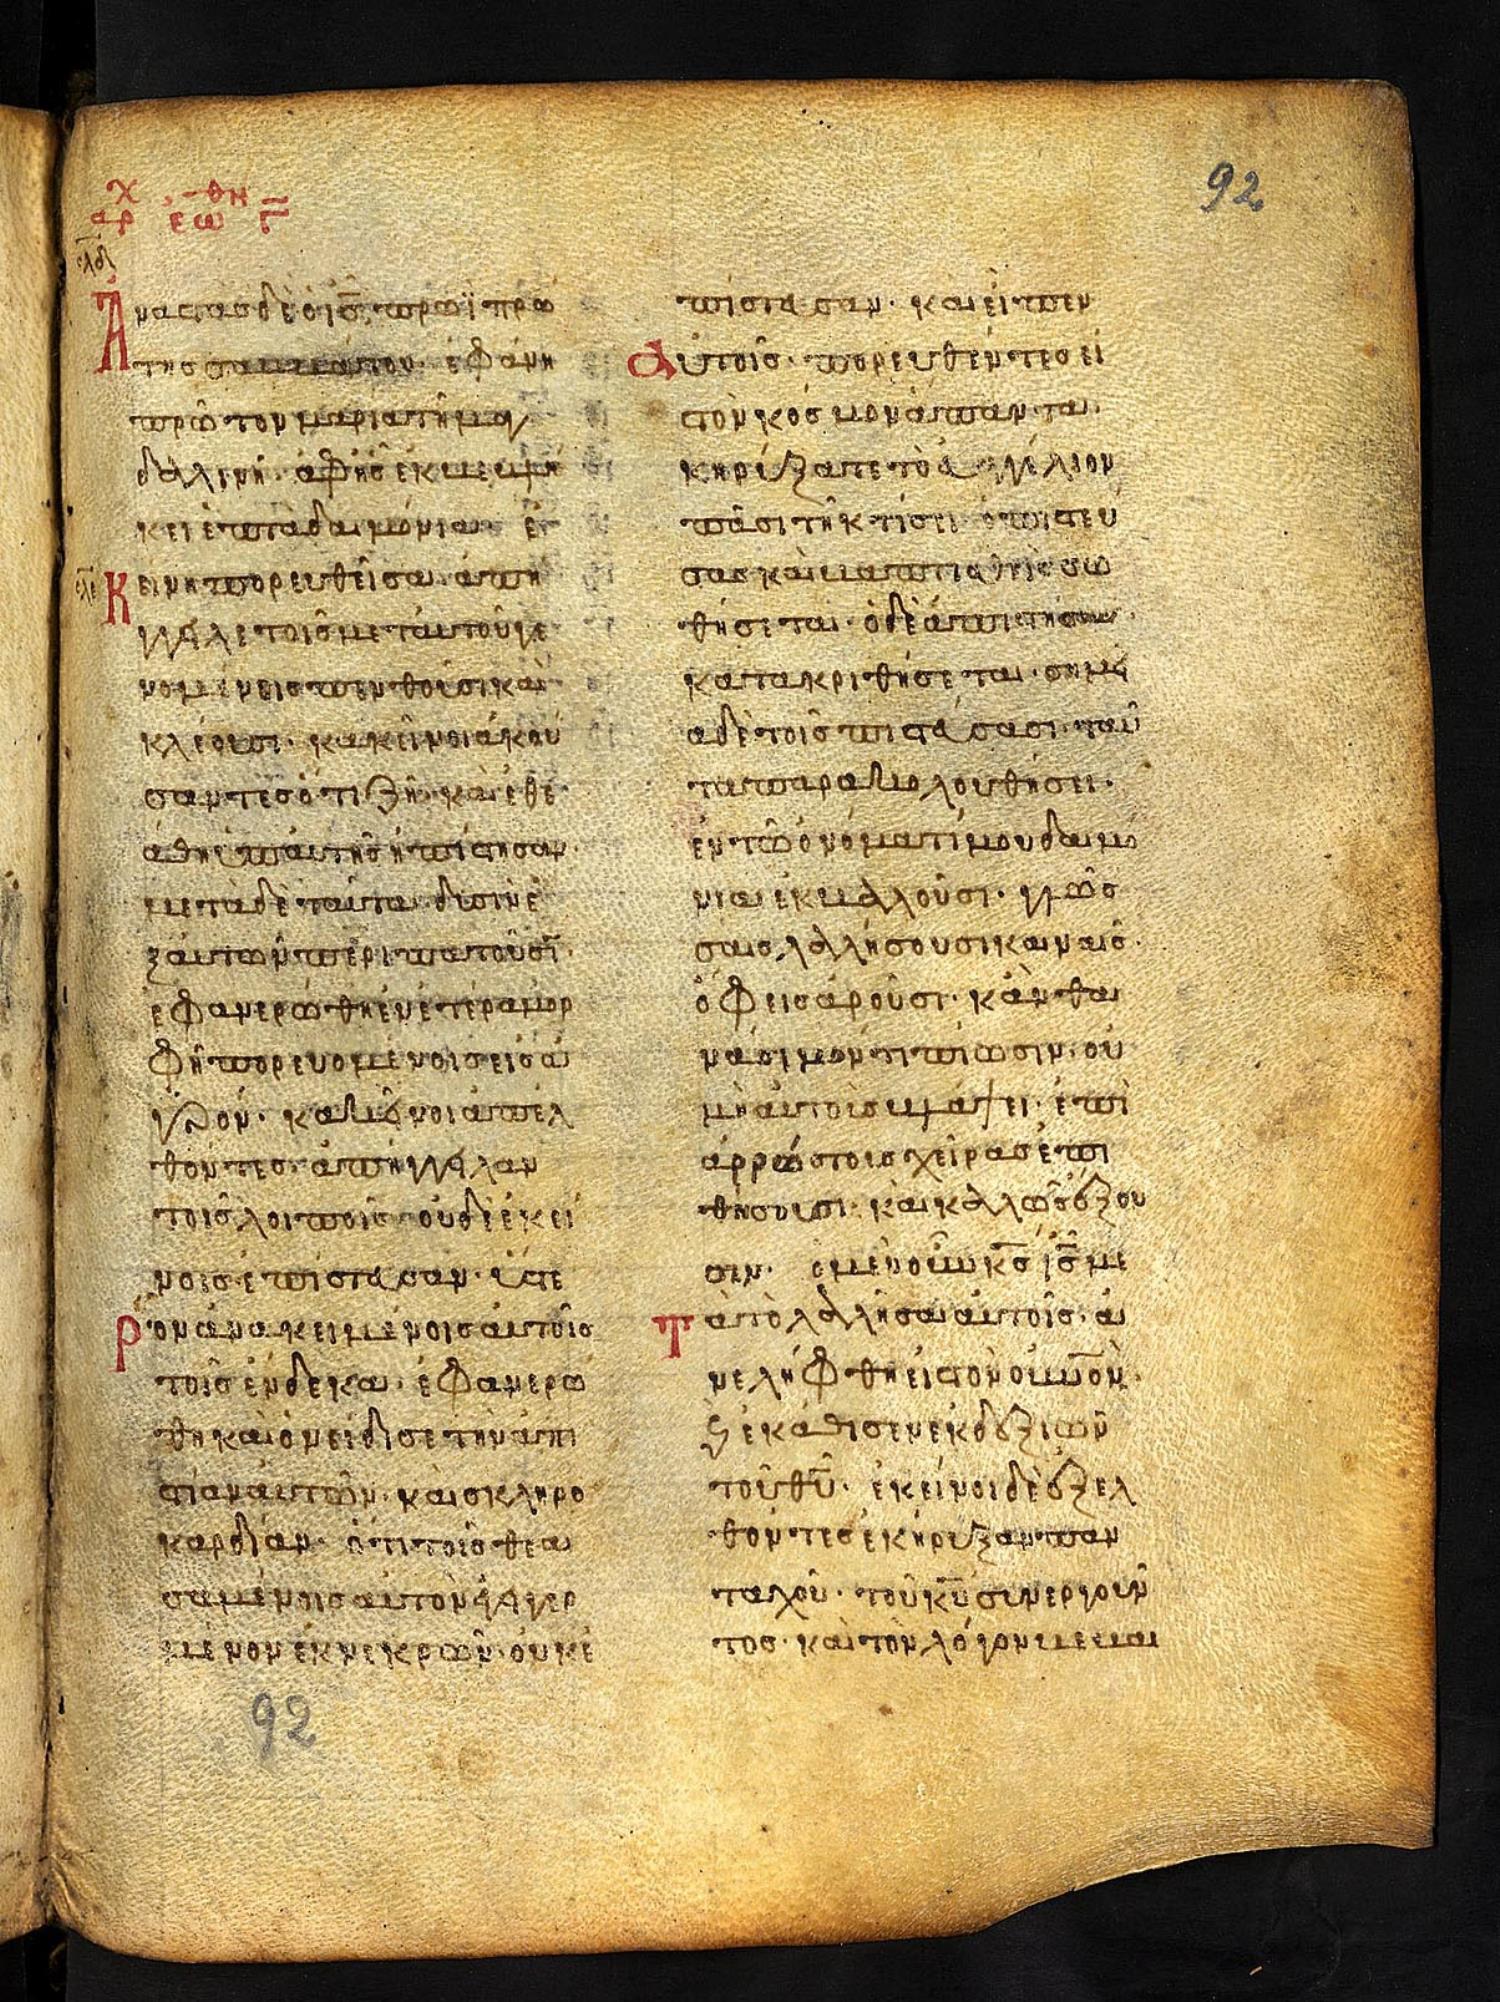 92
ἀρχ ἑωθῆν Γ
Ἀναστὰσ δὲ ὁ ἰς πρωῒ πρώ
τησ σαββάτου· ἐφάνη
πρῶτον μαρία τῆ μαγ
δαλινῆ· ἀφ ἧσ ἐκβεβλή
κει ἑπτὰ δαιμόνια ἐ
Κείνη πορευθεῖσα· ἀπή
γγειλε τοῖσ μετ αὐτοῦ γε
νομένοισ πενθοῦσι καὶ
κλέουσι· κακεῖνοι ἀκού
σαντεσ ὅτι ζῆ· καὶ ἐθε
άθη ὑπ αὐτῆσ ἠπίστησαν·
μετὰ δὲ ταῦτα δυσὶν ἐ
ξ αὐτῶν περιπατοῦσῖ·
ἐφανερώθη ἐν ἑτέρα μορ
φῆ πορευομένοισ εἰσ ἀ
γρόν· κακεῖνοι ἀπελ
θόντεσ· ἀπήγγειλαν
τοῖσ λοιποῖσ οὐδὲ ἐκεί
νοισ ἐπίστευσαν· ὕστε
Ρον ἀνακειμένοισ αὐτοῖσ
τοῖσ ἕνδεκα· ἐφανερώ
θη καὶ ὀνείδισε τὴν ἀπι
στίαν αὐτῶν· καὶ σκληρο
καρδίαν· ὅτι τοῖσ θεα
σαμένοισ αὐτὸν ἐγηγερ
μένον ἐκ νεκρῶν· οὐκ ἐ
πίστευσαν· καὶ εἶπεν
Αὐτοῖσ· πορευθέντεσ εἰ
σ τὸν κόσμον ἅπαντα·
κηρύξατε τὸ εὐαγγέλιον
πάσι τῆ κτίσει ὁ πιστεύ
σασ καὶ βαπτισθεὶσ σω
θήσεται· ὁ δὲ ἀπιστήσασ
κατακριθήσεται· σημεῖ
α δὲ τοῖσ πιστεύσασι· ταῦ
τα παρακολουθήσει·
ἐν τῶ ὀνόματί μου δαιμό
νια ἐκβαλοῦσι· γλώσ
σαισ λαλήσουσι καιναῖσ·
ὄφεισ ἀροῦσι· κἂν θα
νάσιμόν τι πίωσιν· οὐ
μὴ αὐτοὺσ βλάψει· ἐπὶ
ἀρρώστουσ χεῖρασ ἐπι
θήσουσι· καὶ καλῶσ ἕξου
σιν· ὁ μὲν οὖν κς ἰς με
Τὰ τὸ λαλῆσαι αὐτοῖσ· ἀ
νελήφθη εἰσ τὸν οὐνον·
ϗ ἐκάθισεν ἐκ δεξιῶν
τοῦ θῦ· ἐκεῖνοι δὲ ἐξελ
θόντεσ ἐκήρυξαν παν
ταχοῦ· τοῦ κῦ συνεργοῦν
τοσ· καὶ τὸν λόγον βεβαι
92